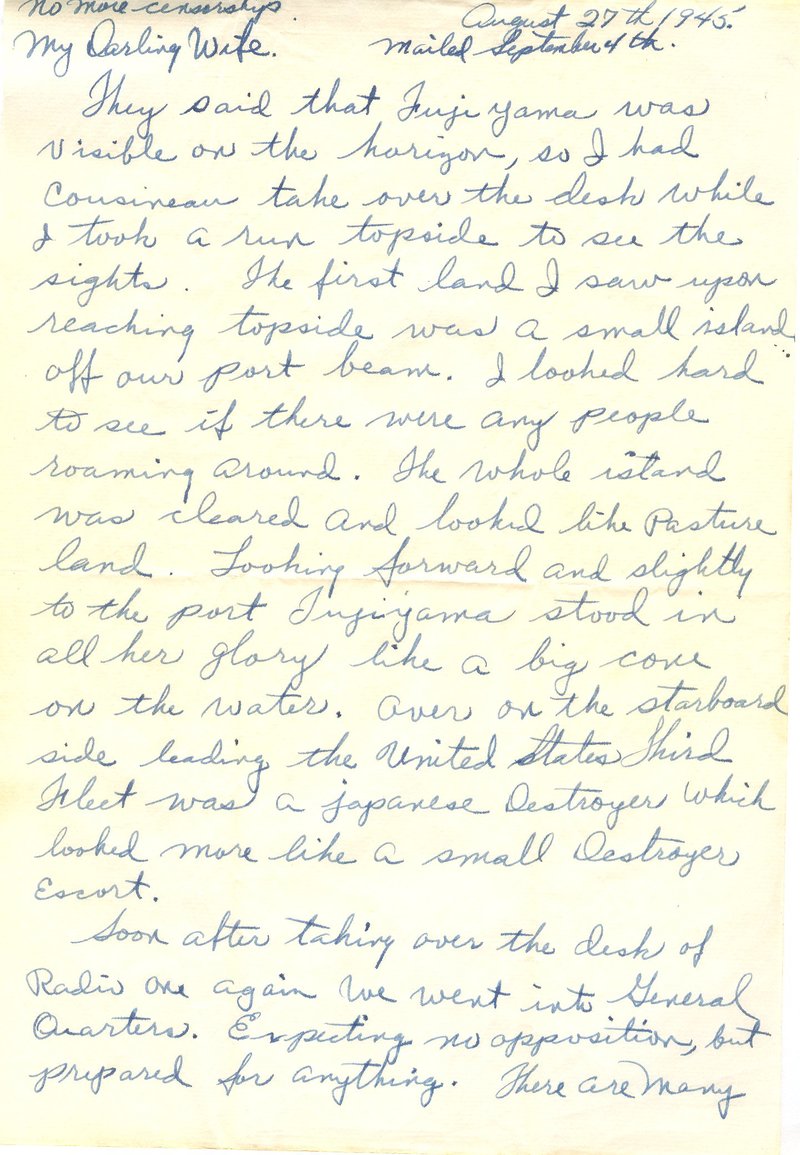 No more censorship
August 27th 1945.
My Darling Wife. Mailed September 4th.
They said that Fujiyama was
visible on the horizon, so I had
Cousineau take over the desk while
I took a run topside to see the
sights. The first land I saw upon
reaching topside was a small island
off our port beam. I looked hard
to see if there were any people
roaming around. The whole island
was cleared and looked like Pasture
land. Looking forward and slightly
to the port Fujiyama stood in
all her glory like a big cone
on the water. Over on the starboard
side leading the United States Third
Fleet was a japanese Destroyer which
looked more like a small Destroyer
Escort.
Soon after taking over the desk of
Radio one again we went into General
Quarters. Expecting no opposition, but
prepared for anything. There are many